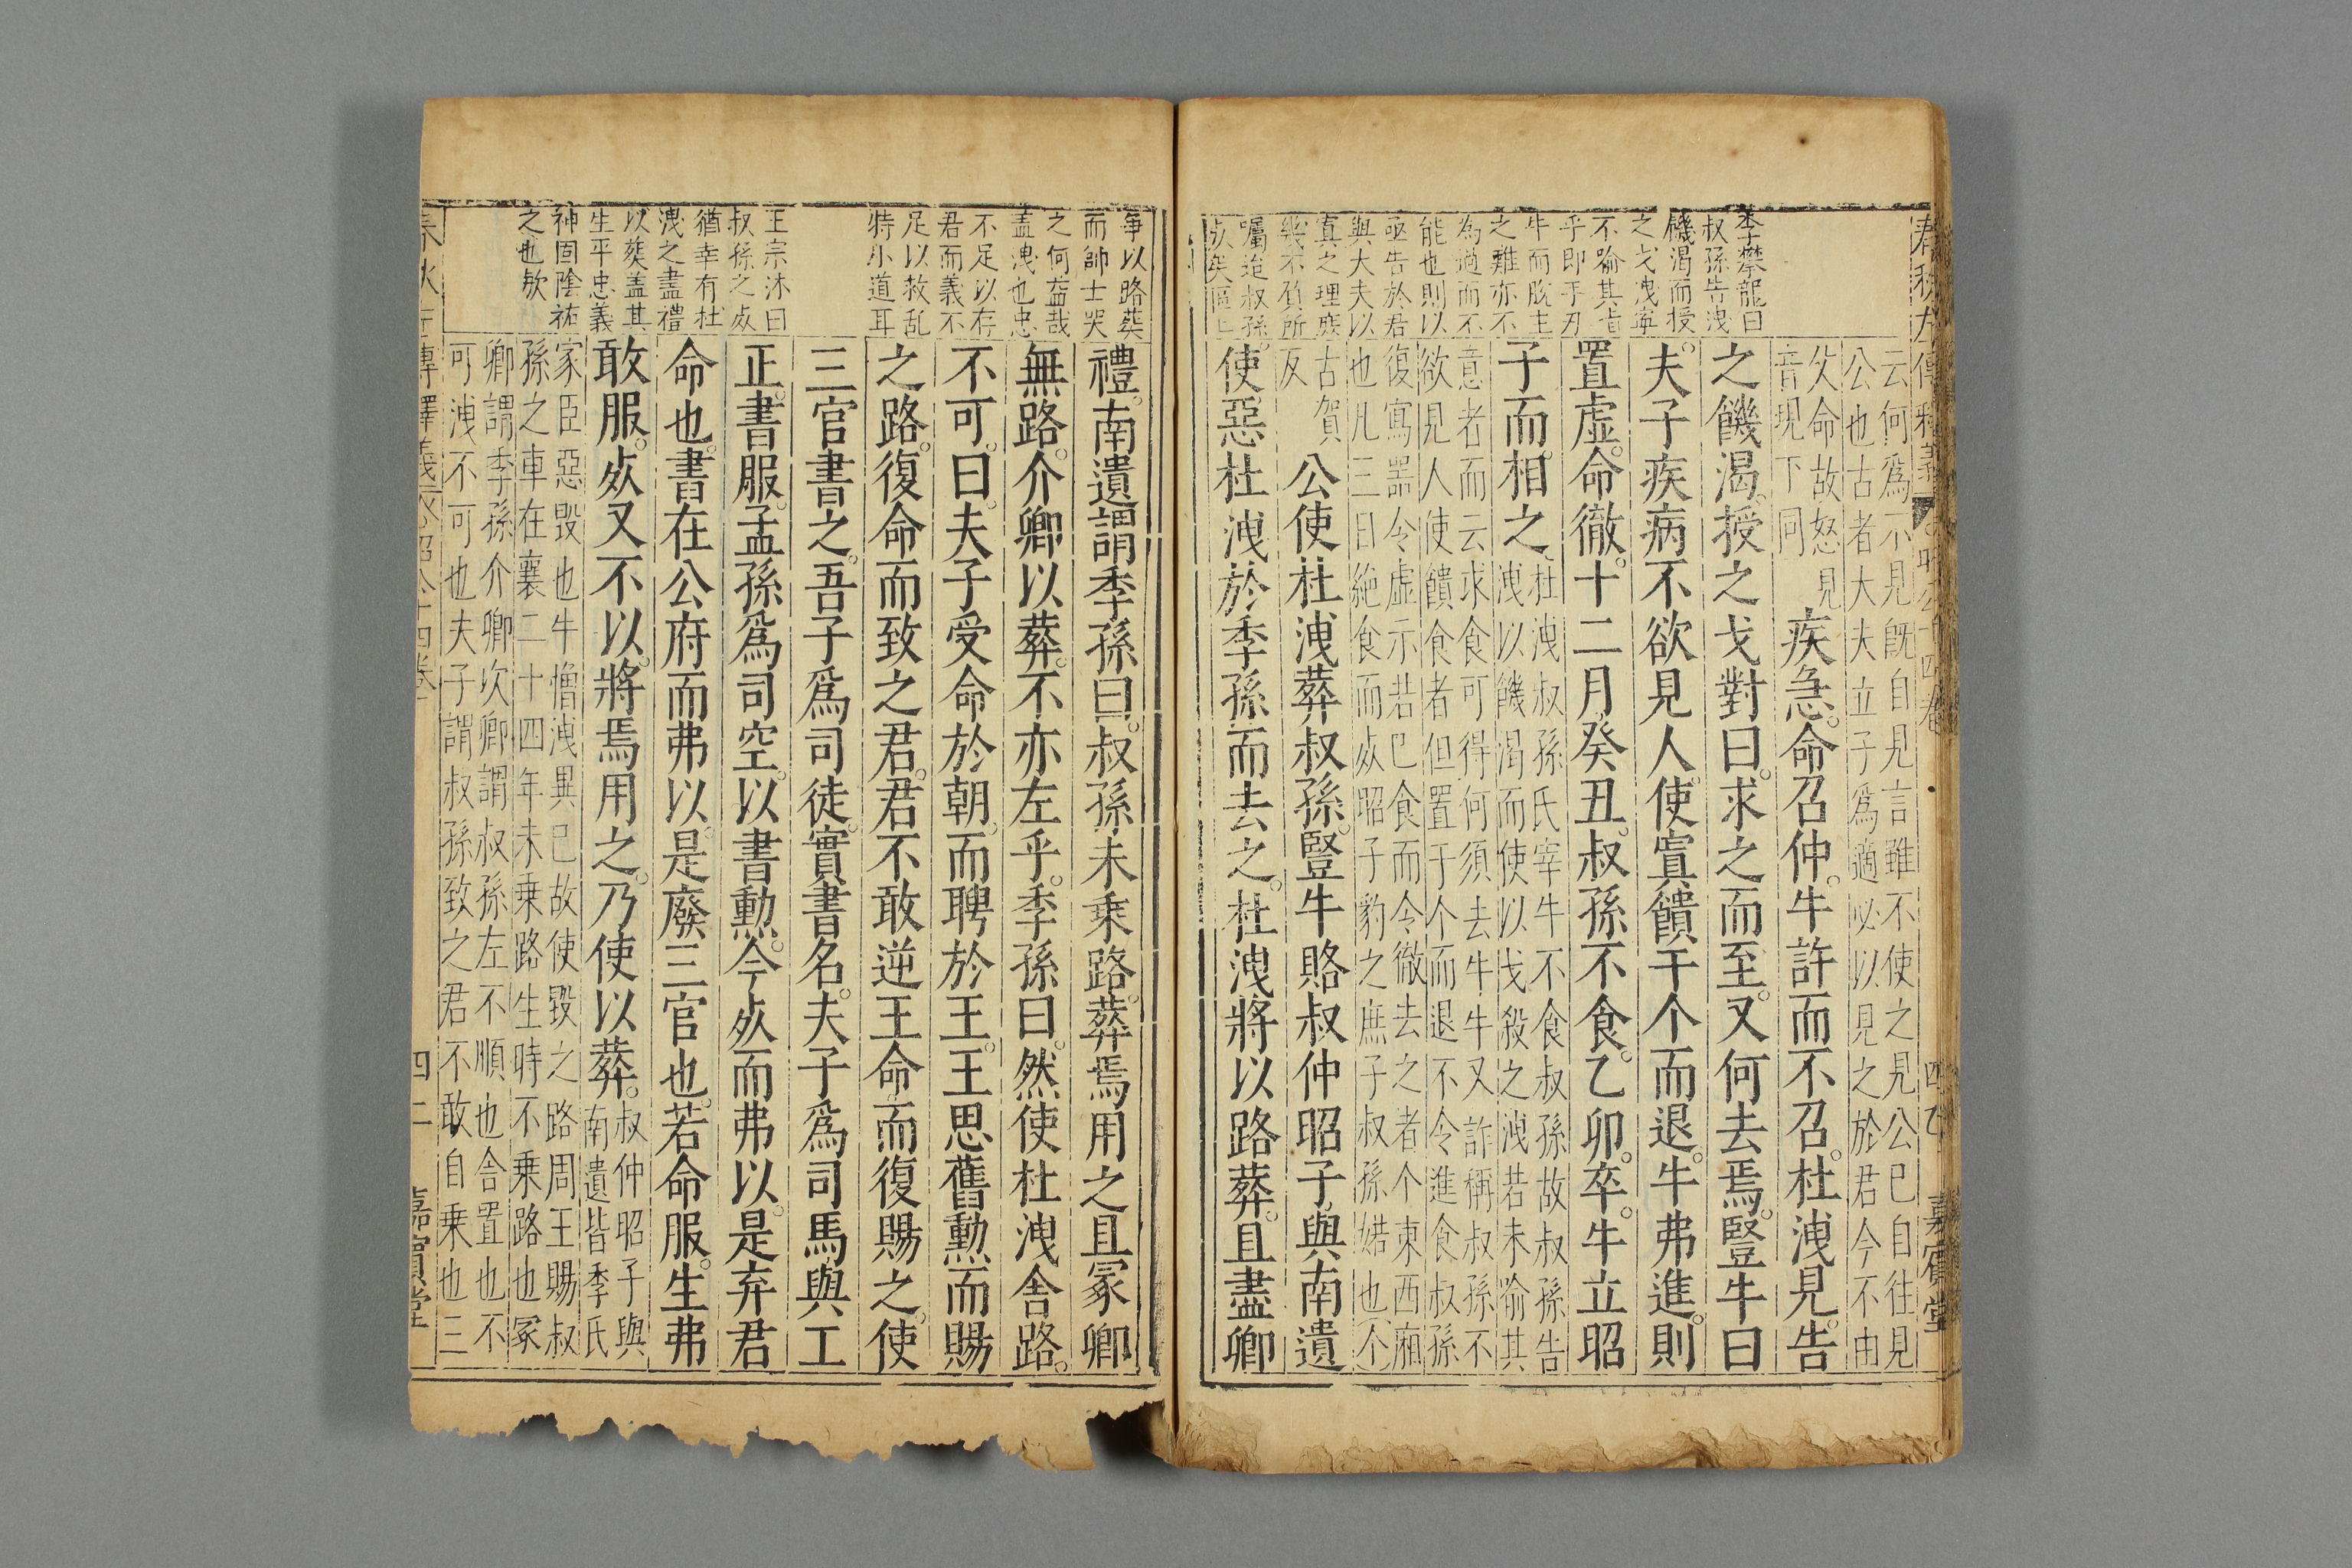 春秋左傳釋義 昭公十四卷 四乙 嘉賓堂
李攀龍曰
叔孫告洩
饑渴而授
之戈洩寧
不喻其旨
乎即手刃
牛而脫主
之難亦不
為過而不
能也則以
亟告於君
與大夫以
寘之理庶
幾不負所
囑迨叔孫
死矣區區
云何爲不見既自見言雖不使之見公已自往見
公也古者大夫立子爲適必以見之於君今不由
父命故怒見
音現下同
疾急。命召仲。牛許而不召。杜洩見。告
之饑渴。授之戈。對曰。求之而至。又何去焉。豎牛曰
夫。子疾病不欲見人。使寘饋于个而退。牛弗進。則
置虛。命徹。十二月癸丑。叔孫不食。乙卯。卒。牛立昭
子而。相之。
杜洩叔孫氏宰牛不食叔孫故叔孫告
洩以饑渴而使以戈殺之洩若未喻其
意者而云求食可得何須去牛牛又詐稱叔孫不
欲見人使饋食者但置于个而退不令進食叔孫
復寫器令虛示若已食而令徹去之者个東西廂
也凡三日絶食而死昭子豹之庶子叔孫婼也个
古賀
反
公使杜洩葬叔孫。豎牛賂叔仲昭子。與南遺
使。惡杜洩於季孫而去之。杜洩將以路葬。且盡卿
爭以路葬
而帥士哭
之何益哉
盖洩也忠
不足以存
君而義不
足以救乱
特小道耳
王宗沐曰
叔孫之死
猶幸有杜
洩之盡禮
以葬盖其
生平忠義
神固陰祐
之也歟
禮。南遺謂季孫曰。叔孫未乘路。葬焉用之且冢卿
無路。介卿以葬。不亦左乎。季孫曰。然使杜洩舍路。
不可。曰。夫子受命於朝。而聘於王。王思舊勳而賜
之路。復命而致之君。君不敢逆王命而復賜之。使
三官書之。吾子爲司徒。實書名。夫子爲司馬與工
正。書服。孟孫爲司空。以書勳。今死而弗以。是弃君
命也。書在公府而弗以。是廢三官也。若命服。生弗
敢服。死又不以。將焉用之。乃使以葬。
叔仲昭子與
南遺皆季氏
家臣惡毀也牛憎洩異已故使毀之路周王賜叔
孫之車在襄二十四年未乘路生時不乘路也冢
卿謂季孫介卿次卿謂叔孫左不順也舍置也不
可洩不可也夫子謂叔孫致之君不敢自乘也三
春秋左傳釋義 昭公十四卷 四二 嘉賓堂